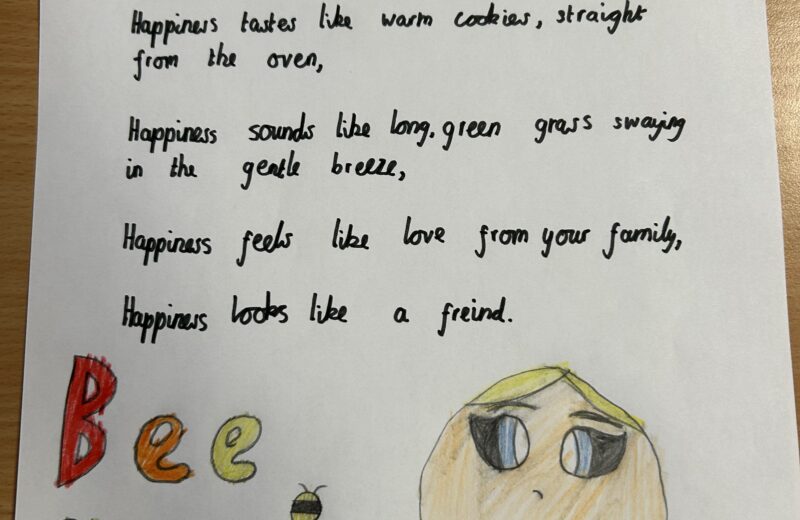 Happiness tastes like warm cookies, straight
from the oven,
Happiness sounds like long, green grass swaying
in the gentle breeze,
Happiness feels like love from your family,
Happiness looks like a freind.
Bee